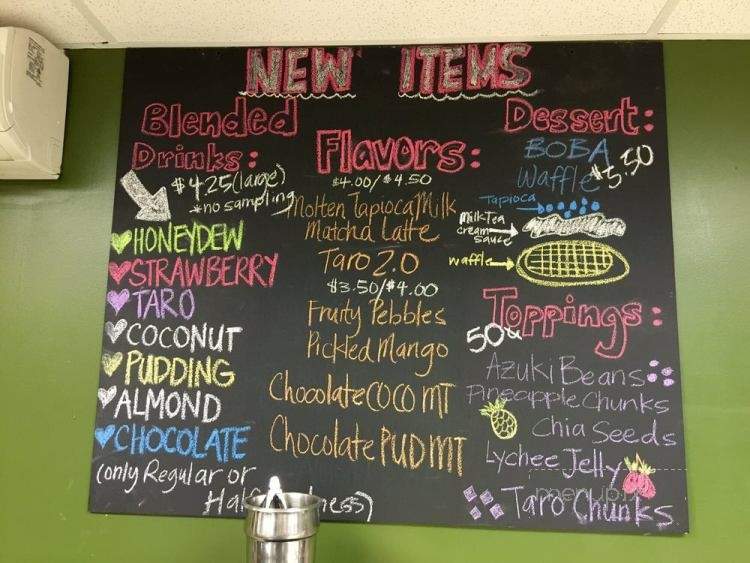 NEW ITEMS
Blended
Drinks:
$4.25 (large)
*no sampling
HONEYDEW
STRAWBERRY
TARO
COCONUT
PUDDING
ALMOND
CHOCOLATE
(only Regular or
Flavors:
$4.00/$4.50
Molten Tapioca Milk
Matcha Latte
Taro 2.0
$3.50/$4.00
Fruity Pebbles
Pickled Mango
Chocolate COCO MT
Chocolate PUD MT
Dessert:
BOBA
Waffle $5.50
Tapioca
Milk Tea
cream
sauce
waffle
Toppings:
50¢
Azuki Beans
Pineapple Chunks
Chia Seeds
Lychee Jelly
Taro Chunks